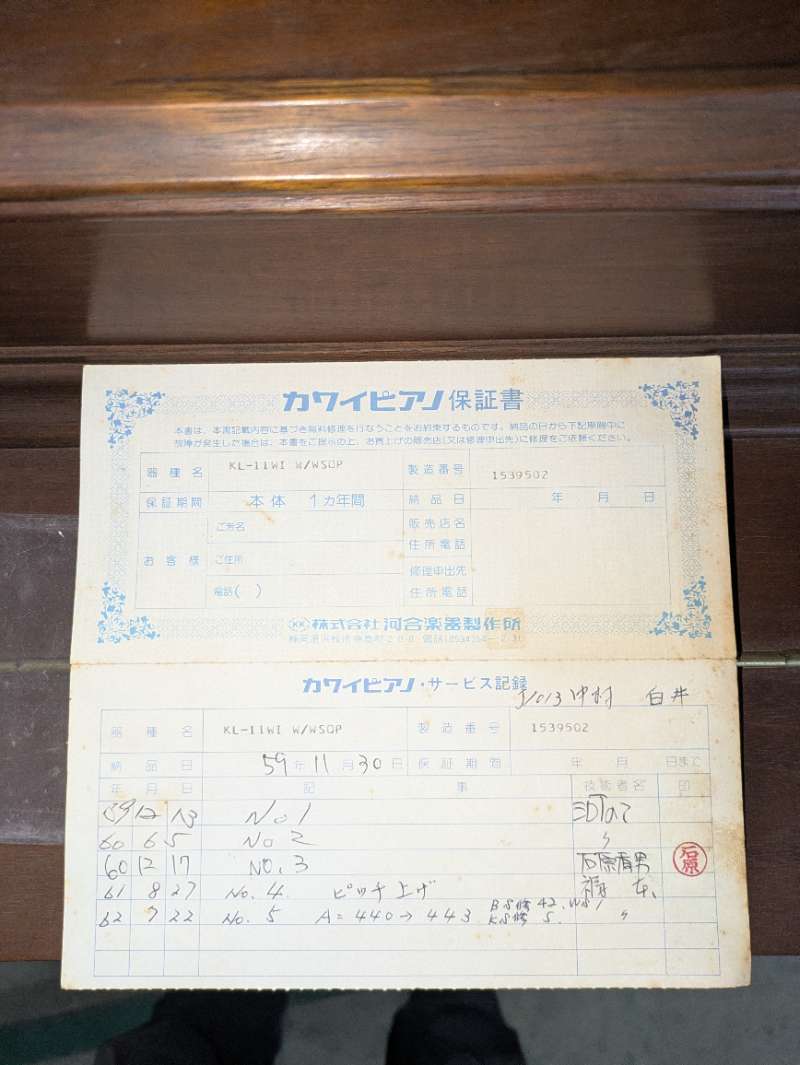 カワイピアノ保証書
本書は、本書記載内容に基づき無料修理を行なうことをお約束するものです。納品の日から下記期間中に
故障が発生した場合は、本書をご提示の上、お買上げの販売店(又は修理申出先)に修理をご依頼ください。
器種名 KL-11WI W/WSOP 製造番号 1539502
保証期間 本体 1カ年間 納品日 年 月 日
お客様 ご芳名 販売店名
住所電話
ご住所 修理申出先
電話( ) 住所電話
株式会社 河合楽器製作所
カワイピアノ・サービス記録
中村 白井
器種名 KL-11WI W/WSOP 製造番号 1539502
納品日 59年11月30日 保証期間 年 月 日まで
年月日 記事 技術者名 印
59 12 13 No 1
60 6 5 No 2 〃
60 12 17 NO. 3 石原 石原
61 8 27 No. 4. ピッチ上げ
62 7 22 No. 5 A = 440 → 443 〃